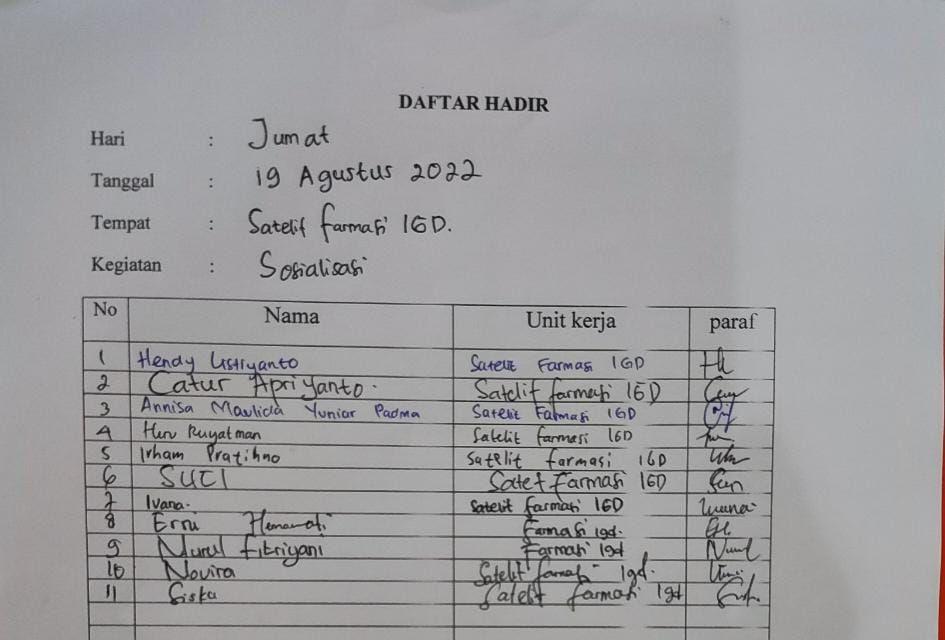 DAFTAR HADIR
Hari : Jumat
Tanggal : 19 Agustus 2022
Tempat : Satelit farmasi IGD.
Kegiatan : Sosialisasi
No Nama Unit kerja paraf
1 Hendy Listiyanto Satelit Farmasi IGD
2 Catur Apriyanto. Satelit farmasi IGD
3 Annisa Maulida Yuniar Padma Satelit Farmasi IGD
4 Heru Ruyatman Satelit farmasi IGD
5 Irham Pratihno Satelit farmasi IGD
6 SUCI Satet Farmasi IGD
7 Ivana. Satelit farmasi IGD Ivana
8 Erni Farmasi igd.
9 Nurul Fitriyani Farmasi igd Nurul
10 Novira Satelit farmasi Igd.
11 Siska Satelit farmasi Igd